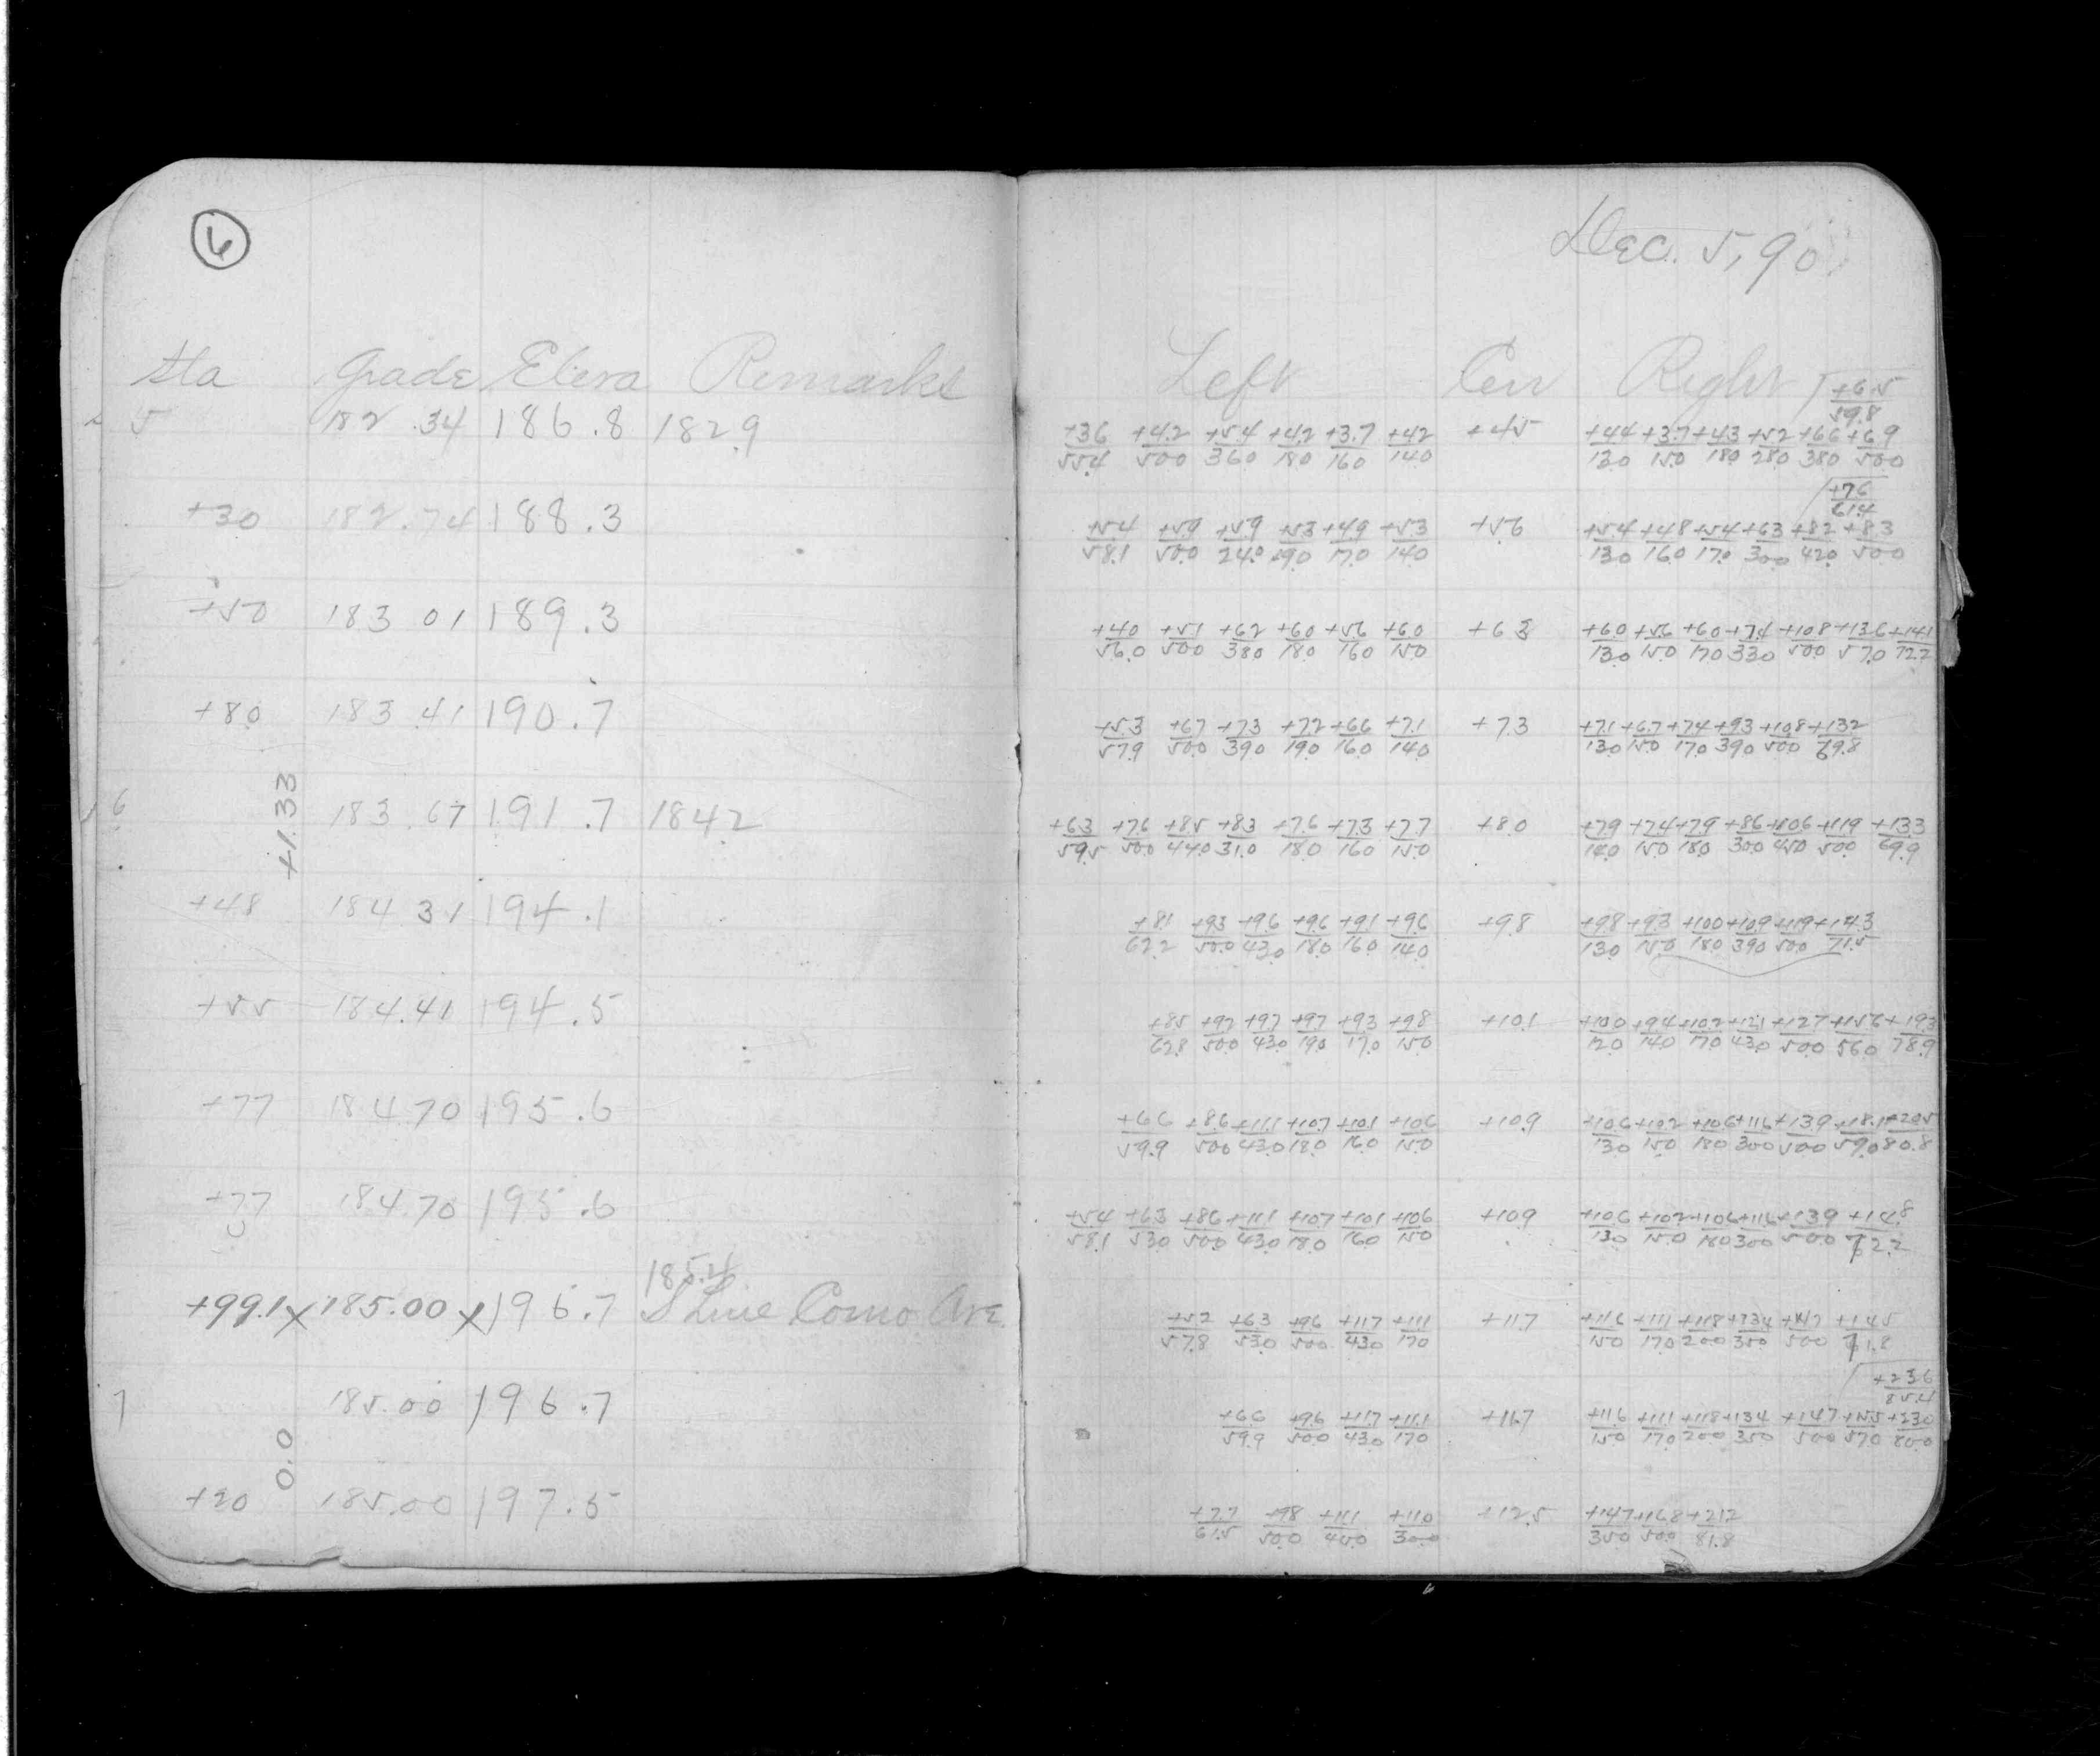 6
Sta Grade Eleva Remarks
5 182.34 186.8 182.9
+30 182.74 188.3
+50 183 01 189.3
+80 183 41 190.7
+1.33
6 183.67 191.7 184.2
+48 184 31 194.1
+55 184.41 194.5
+77 184.70 195.6
+77 184.70 195.6
185.4
+99.1 x 185.00 x 196.7 S Line Como Ave.
7 185.00 196.7
0.0
+20 185.00 197.5
Dec. 5, 90
Left Cen Right
+6.5
59.8
+3.6 +4.2 +5.4 +4.2 +3.7 +4.2 +4.5 +4.4 +3.7 +4.3 +5.2 +6.6 +6.9
55.4 50.0 36.0 18.0 16.0 14.0 13.0 15.0 18.0 28.0 38.0 50.0
+7.6
61.4
+5.4 +5.9 +5.9 +5.3 +4.9 +5.3 +5.6 +5.4 +4.8 +5.4 +6.3 +8.2 +8.3
58.1 50.0 24.0 19.0 17.0 14.0 13.0 16.0 17.0 30.0 42.0 50.0
+4.0 +5.1 +6.2 +6.0 +5.6 +6.0 +6.3 +6.0 +5.6 +6.0 +7.4 +10.8 +13.6 +14.1
56.0 50.0 38.0 18.0 16.0 15.0 13.0 15.0 17.0 33.0 50.0 57.0 72.2
+5.3 +6.7 +7.3 +7.2 +6.6 +7.1 +7.3 +7.1 +6.7 +7.4 +9.3 +10.8 +13.2
57.9 50.0 39.0 19.0 16.0 14.0 13.0 15.0 17.0 39.0 50.0 69.8
+6.3 +7.6 +8.5 +8.3 +7.6 +7.3 +7.7 +8.0 +7.9 +7.4 +7.9 +8.6 +10.6 +11.9 +13.3
59.5 50.0 44.0 31.0 18.0 16.0 15.0 14.0 15.0 18.0 30.0 45.0 50.0 69.9
+8.1 +9.3 +9.6 +9.6 +9.1 +9.6 +9.8 +9.8 +9.3 +10.0 +10.9 +11.9 +14.3
62.2 50.0 43.0 18.0 16.0 14.0 13.0 15.0 18.0 39.0 50.0 71.5
+8.5 +9.2 +9.7 +9.7 +9.3 +9.8 +10.1 +10.0 +9.4 +10.2 +12.1 +12.7 +15.6 +19.3
62.8 50.0 43.0 19.0 17.0 15.0 12.0 14.0 17.0 43.0 50.0 56.0 78.9
+6.6 +8.6 +11.1 +10.7 +10.1 +10.6 +10.9 +10.6 +10.2 +10.6 +11.6 +13.9 +18.1 +20.5
59.9 50.0 43.0 18.0 16.0 15.0 13.0 15.0 18.0 30.0 50.0 59.0 80.8
+5.4 +6.3 +8.6 +11.1 +10.7 +10.1 +10.6 +10.9 +10.6 +10.2 +10.6 +11.6 +13.9 +14.8
58.1 53.0 50.0 43.0 18.0 16.0 15.0 13.0 15.0 18.0 30.0 50.0 72.2
+5.2 +6.3 +9.6 +11.7 +11.1 +11.7 +11.6 +11.1 +11.8 +13.4 +14.7 +14.5
57.8 53.0 50.0 43.0 17.0 15.0 17.0 20.0 35.0 50.0 71.8
+23.6
85.4
+6.6 +9.6 +11.7 +11.1 +11.7 +11.6 +11.1 +11.8 +13.4 +14.7 +15.5 +23.0
59.9 50.0 43.0 17.0 15.0 17.0 20.0 35.0 50.0 57.0 80.0
+7.7 +9.8 +11.1 +11.0 +12.5 +14.7 +16.8 +21.2
61.5 50.0 45.0 30.0 35.0 50.0 81.8